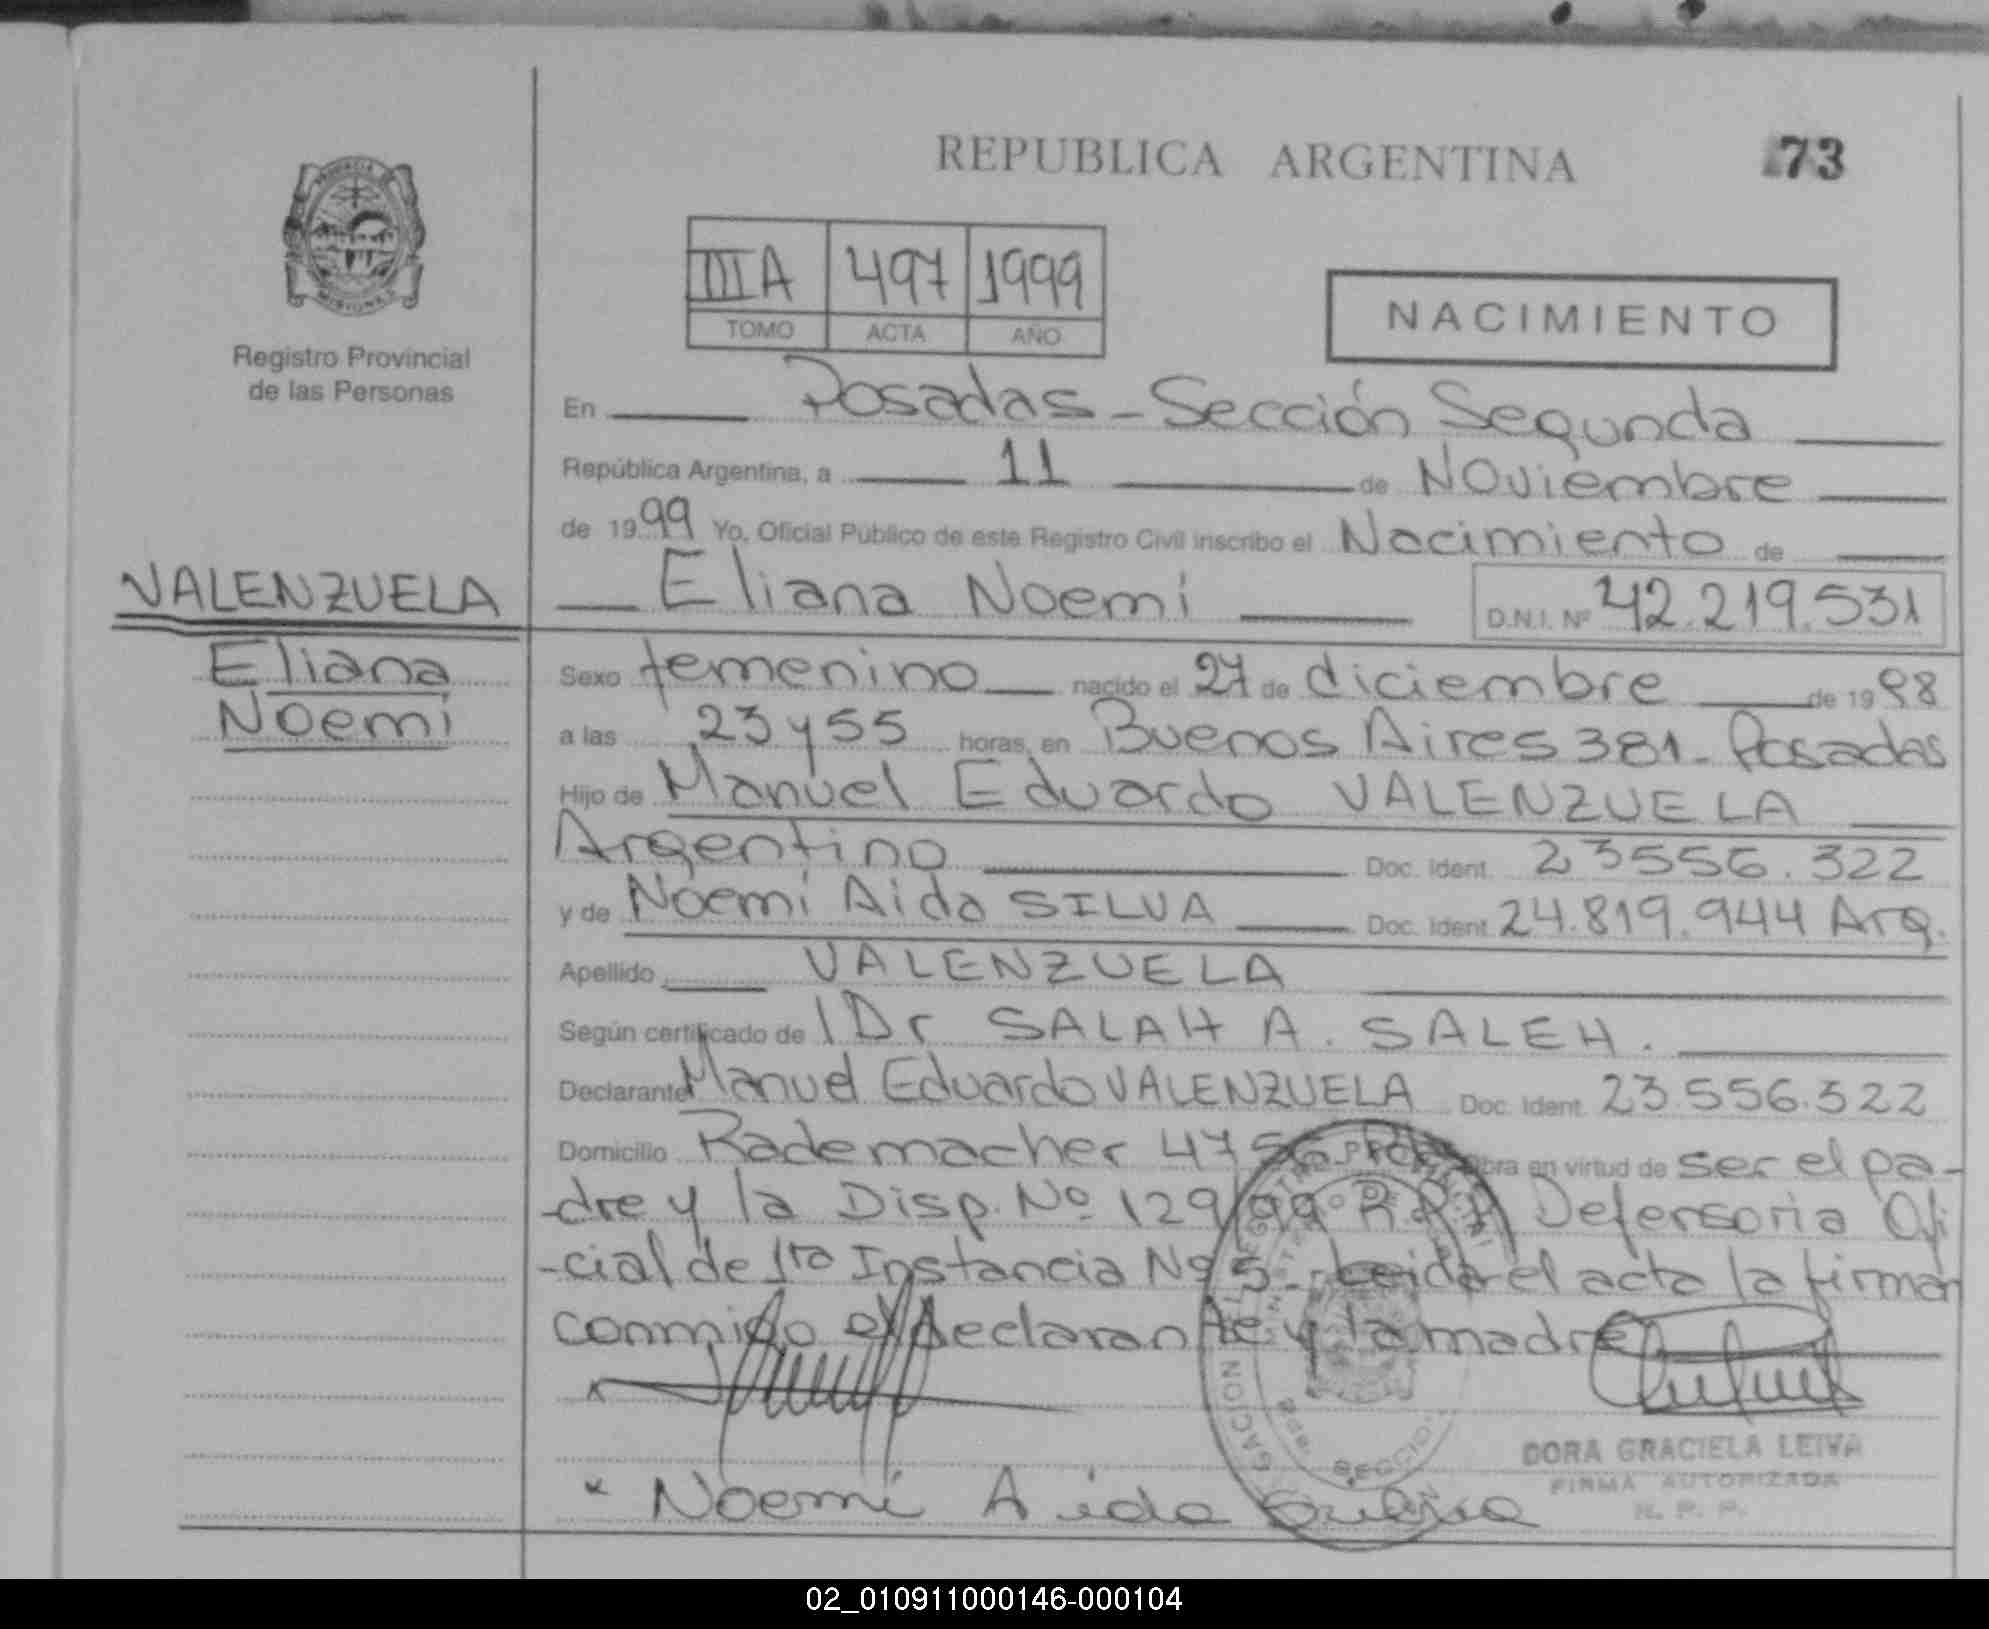 REPUBLICA ARGENTINA
73
PROVINCIA DE
MISIONES
Registro Provincial
de las Personas
IIIA 497 1999
TOMO ACTA AÑO
NACIMIENTO
En Posadas - Sección Segunda
República Argentina, a 11 de Noviembre
de 1999 Yo, Oficial Público de este Registro Civil inscribo el Nacimiento de
Eliana Noemi D.N.I. Nº 42.219.531
VALENZUELA
Eliana
Noemi
Sexo femenino nacido el 27 de diciembre de 1998
a las 23 y 55 horas, en Buenos Aires 381 - Posadas
Hijo de Manuel Eduardo VALENZUELA
Argentino Doc. Ident. 23556.322
y de Noemi Aida SILVA Doc. Ident. 24.819.944 Arg.
Apellido VALENZUELA
Según certificado de l Dr SALAH A. SALEH.
Declarante Manuel Eduardo VALENZUELA Doc. Ident. 23.556.322
Domicilio Rademacher 4756 Obra en virtud de ser el pa-
-dre y la Disp. Nº 129/99 R.P.P. Defensoria Ofi
-cial de 1ra Instancia Nº 5 - Leida el acta la firman
conmigo el declarante y la madre
x
x Noemi Aida Silva
DORA GRACIELA LEIVA
FIRMA AUTORIZADA
R. P. P.
02_010911000146-000104